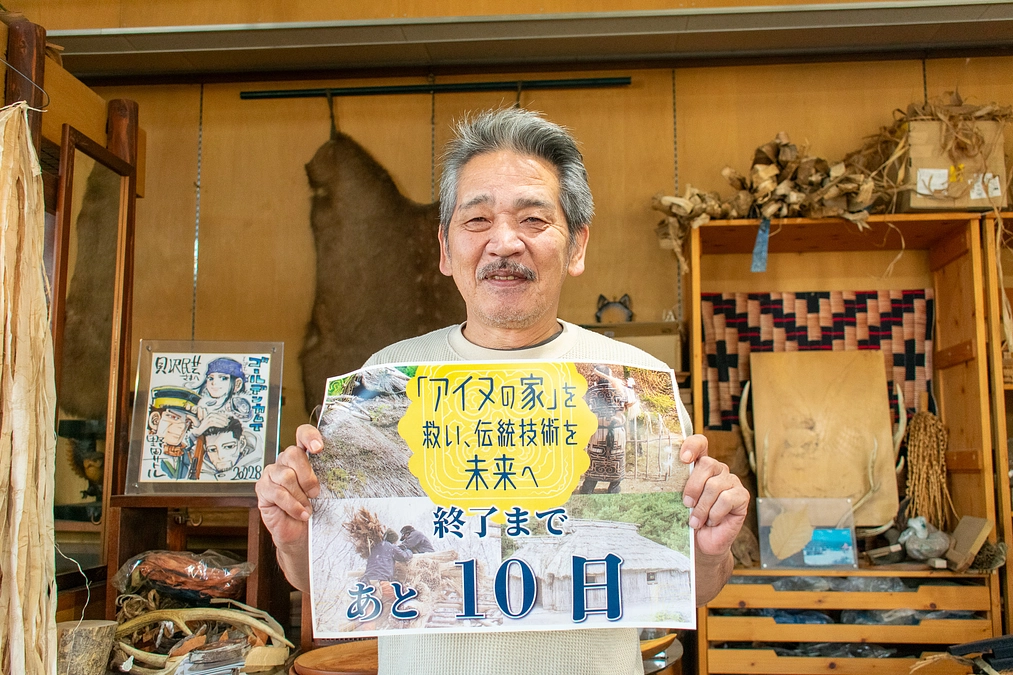 「アイヌの家」を
救い、伝統技術を
未来へ
終了まで
あと 10 日
貝沢民芸
さん江
ゴールデンカムイ
野田サトル